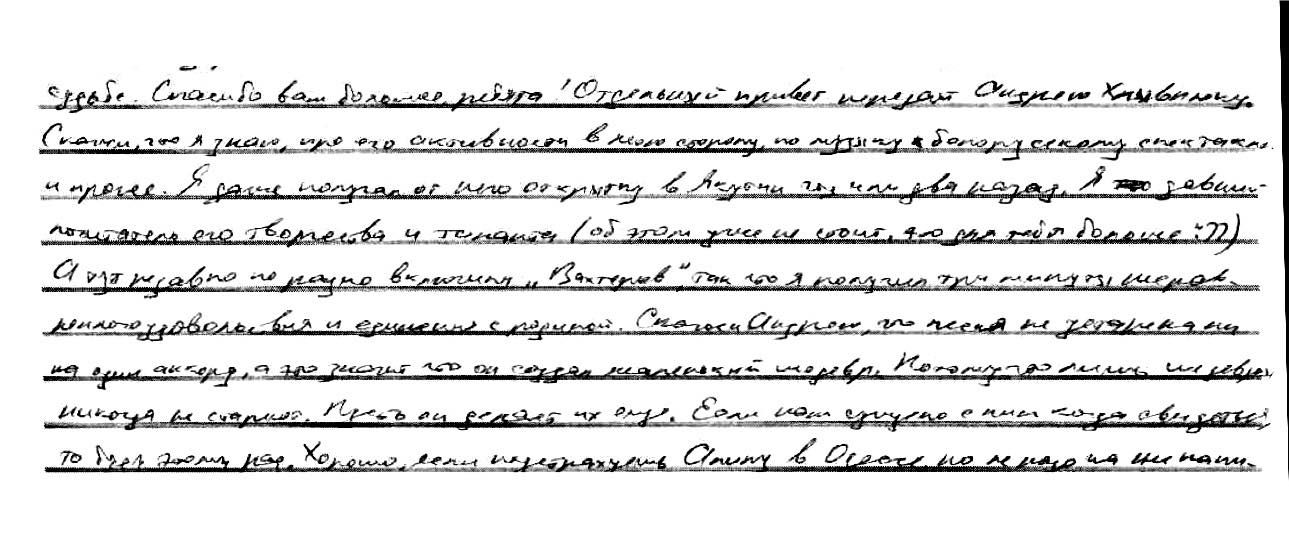 судьбе. Спасибо вам большое, ребята! Отдельный привет передай Андрею Хлывнюку.
Скажи, что я знаю, про его активности в мою сторону, по
и прочее. Я даже получал от него открытку в Якутии год или два назад. Я давний
почитатель его творчества и таланта (об этом уже не стоит, это для тебя больше :)))
А тут недавно по радио включили „Вахтерам", так что я получил три минуты
удовольствия и единения с родиной. Скажи Андрею, что песня не устарела ни
на один аккорд, а это значит что он создал маленький шедевр. Потому что лишь шедевры
никогда не стареют. Пусть он делает их еще. Если нам суждено с ним когда свидеться,
то буду этому рад. Хорошо, если подстрахуешь Алину в Одессе, но не надо на ней